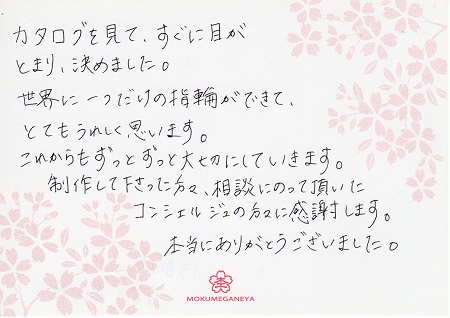 カタログを見て、すぐに目が
とまり、決めました。
世界に一つだけの指輪ができて、
とてもうれしく思います。
これからもずっとずっと大切にしていきます。
制作して下さった方々、相談にのって頂いた
コンシェルジュの方々に感謝します。
本当にありがとうございました。
MOKUMEGANEYA